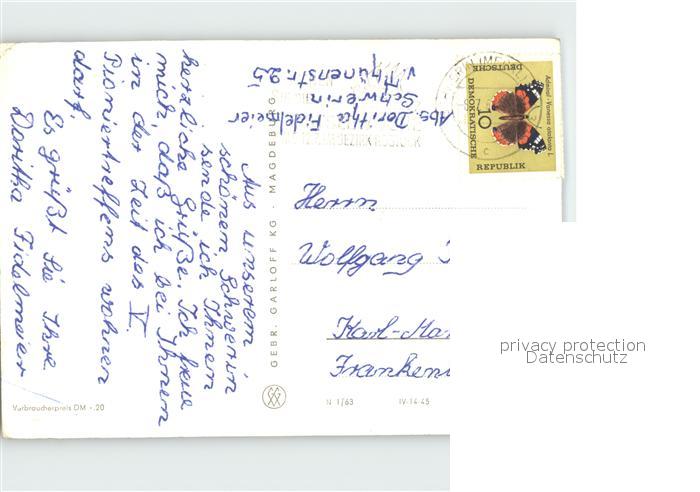 Aus unserem
schönem Schwerin
sende ich Ihnen
herzliche Grüße. Ich freue
mich, daß ich bei Ihnen
in der Zeit des V.
Pioniertreffens wohnen
darf.
Es grüßt Sie Ihre
Doritha Fidelmeier
Abs. Doritha Fidelmeier
Schwerin
v. Thünenstr. 25
DEUTSCHE
DEMOKRATISCHE
REPUBLIK
10
Admiral · Vanessa atalanta L.
Herrn
Wolfgang
Karl-Mar
Franken
GEBR. GARLOFF KG · MAGDEBURG
Verbraucherpreis DM -.20
N 1/63 IV-14-45
privacy protection
Datenschutz